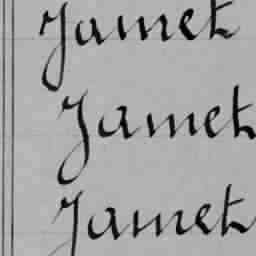 Jamet
Jamet
Jamet